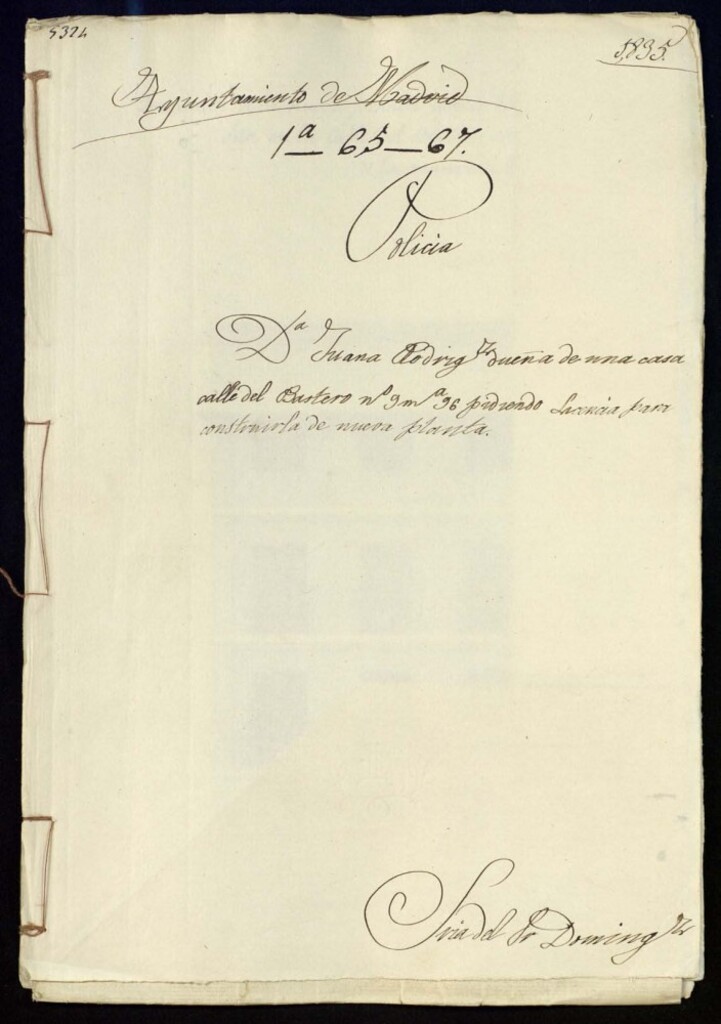 5324
1835.
Ayuntamiento de Madrid
1ª 65 67.
Policia
Dª Juana Rodrigᶻ dueña de una casa
calle del Bastero nº 9 mª 96 pidiendo Licencia para
construirla de nueva planta.
Sria del Sr Domingᶻ